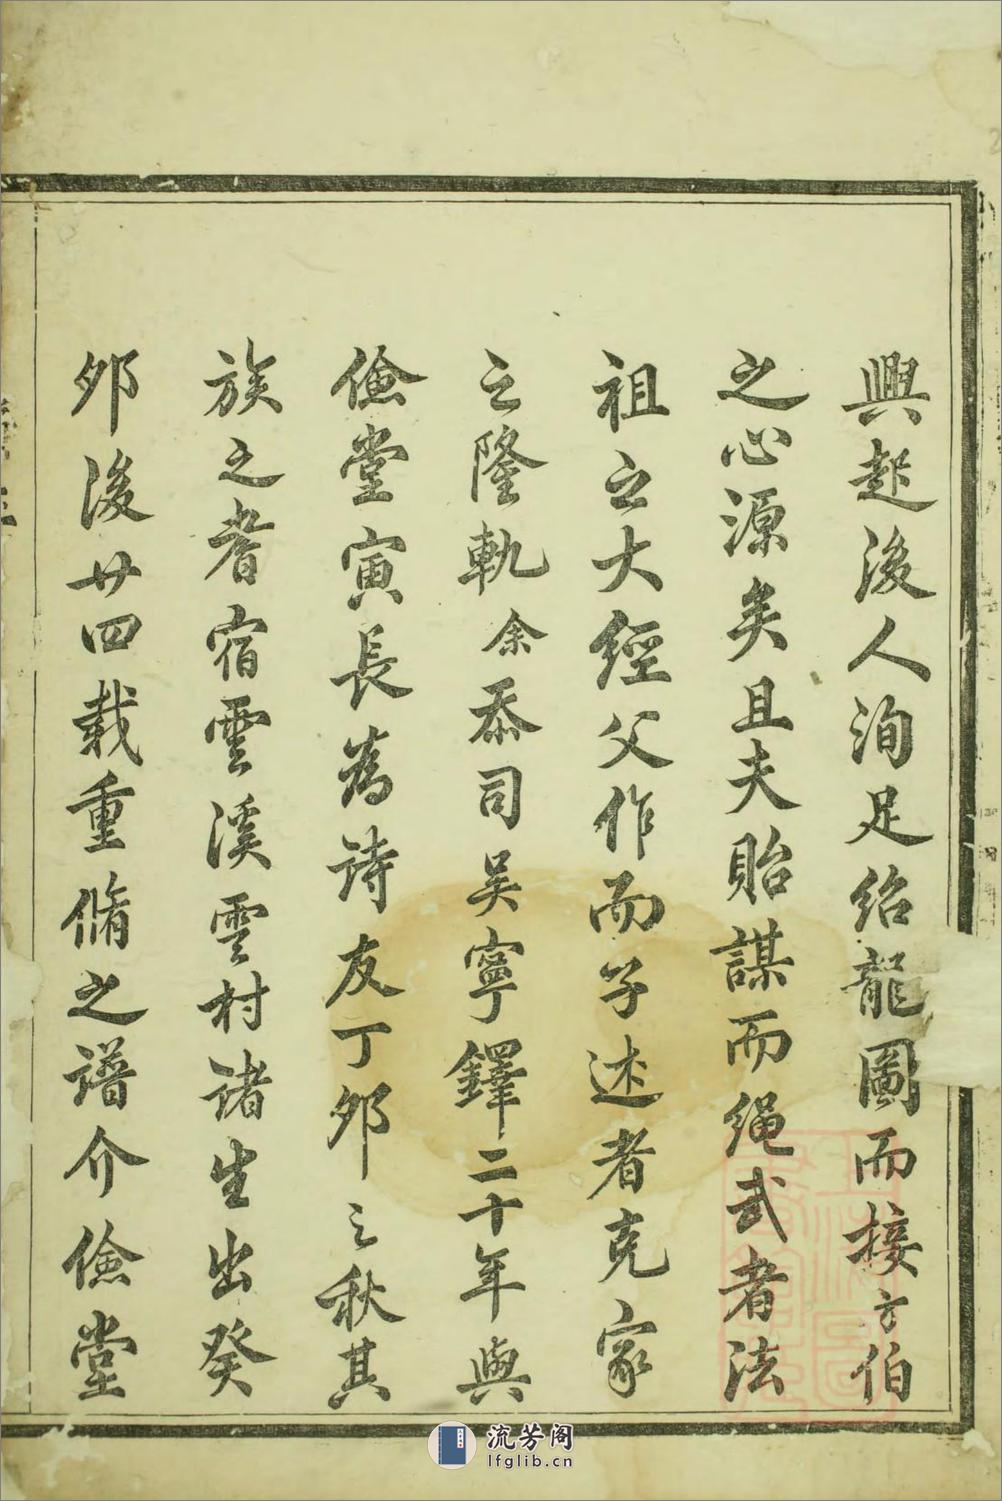 興起後人洵足紹龍圖而接方伯
之心源矣且夫貽謀而繩武者法
祖之大經父作而子述者克家
之隆軌余忝司吳寧鐸二十年與
儉堂寅長為詩友丁卯之秋其
族之耆宿雲溪雲村諸生出癸
卯後廿四載重脩之譜介儉堂
流芳阁
lfglib.cn